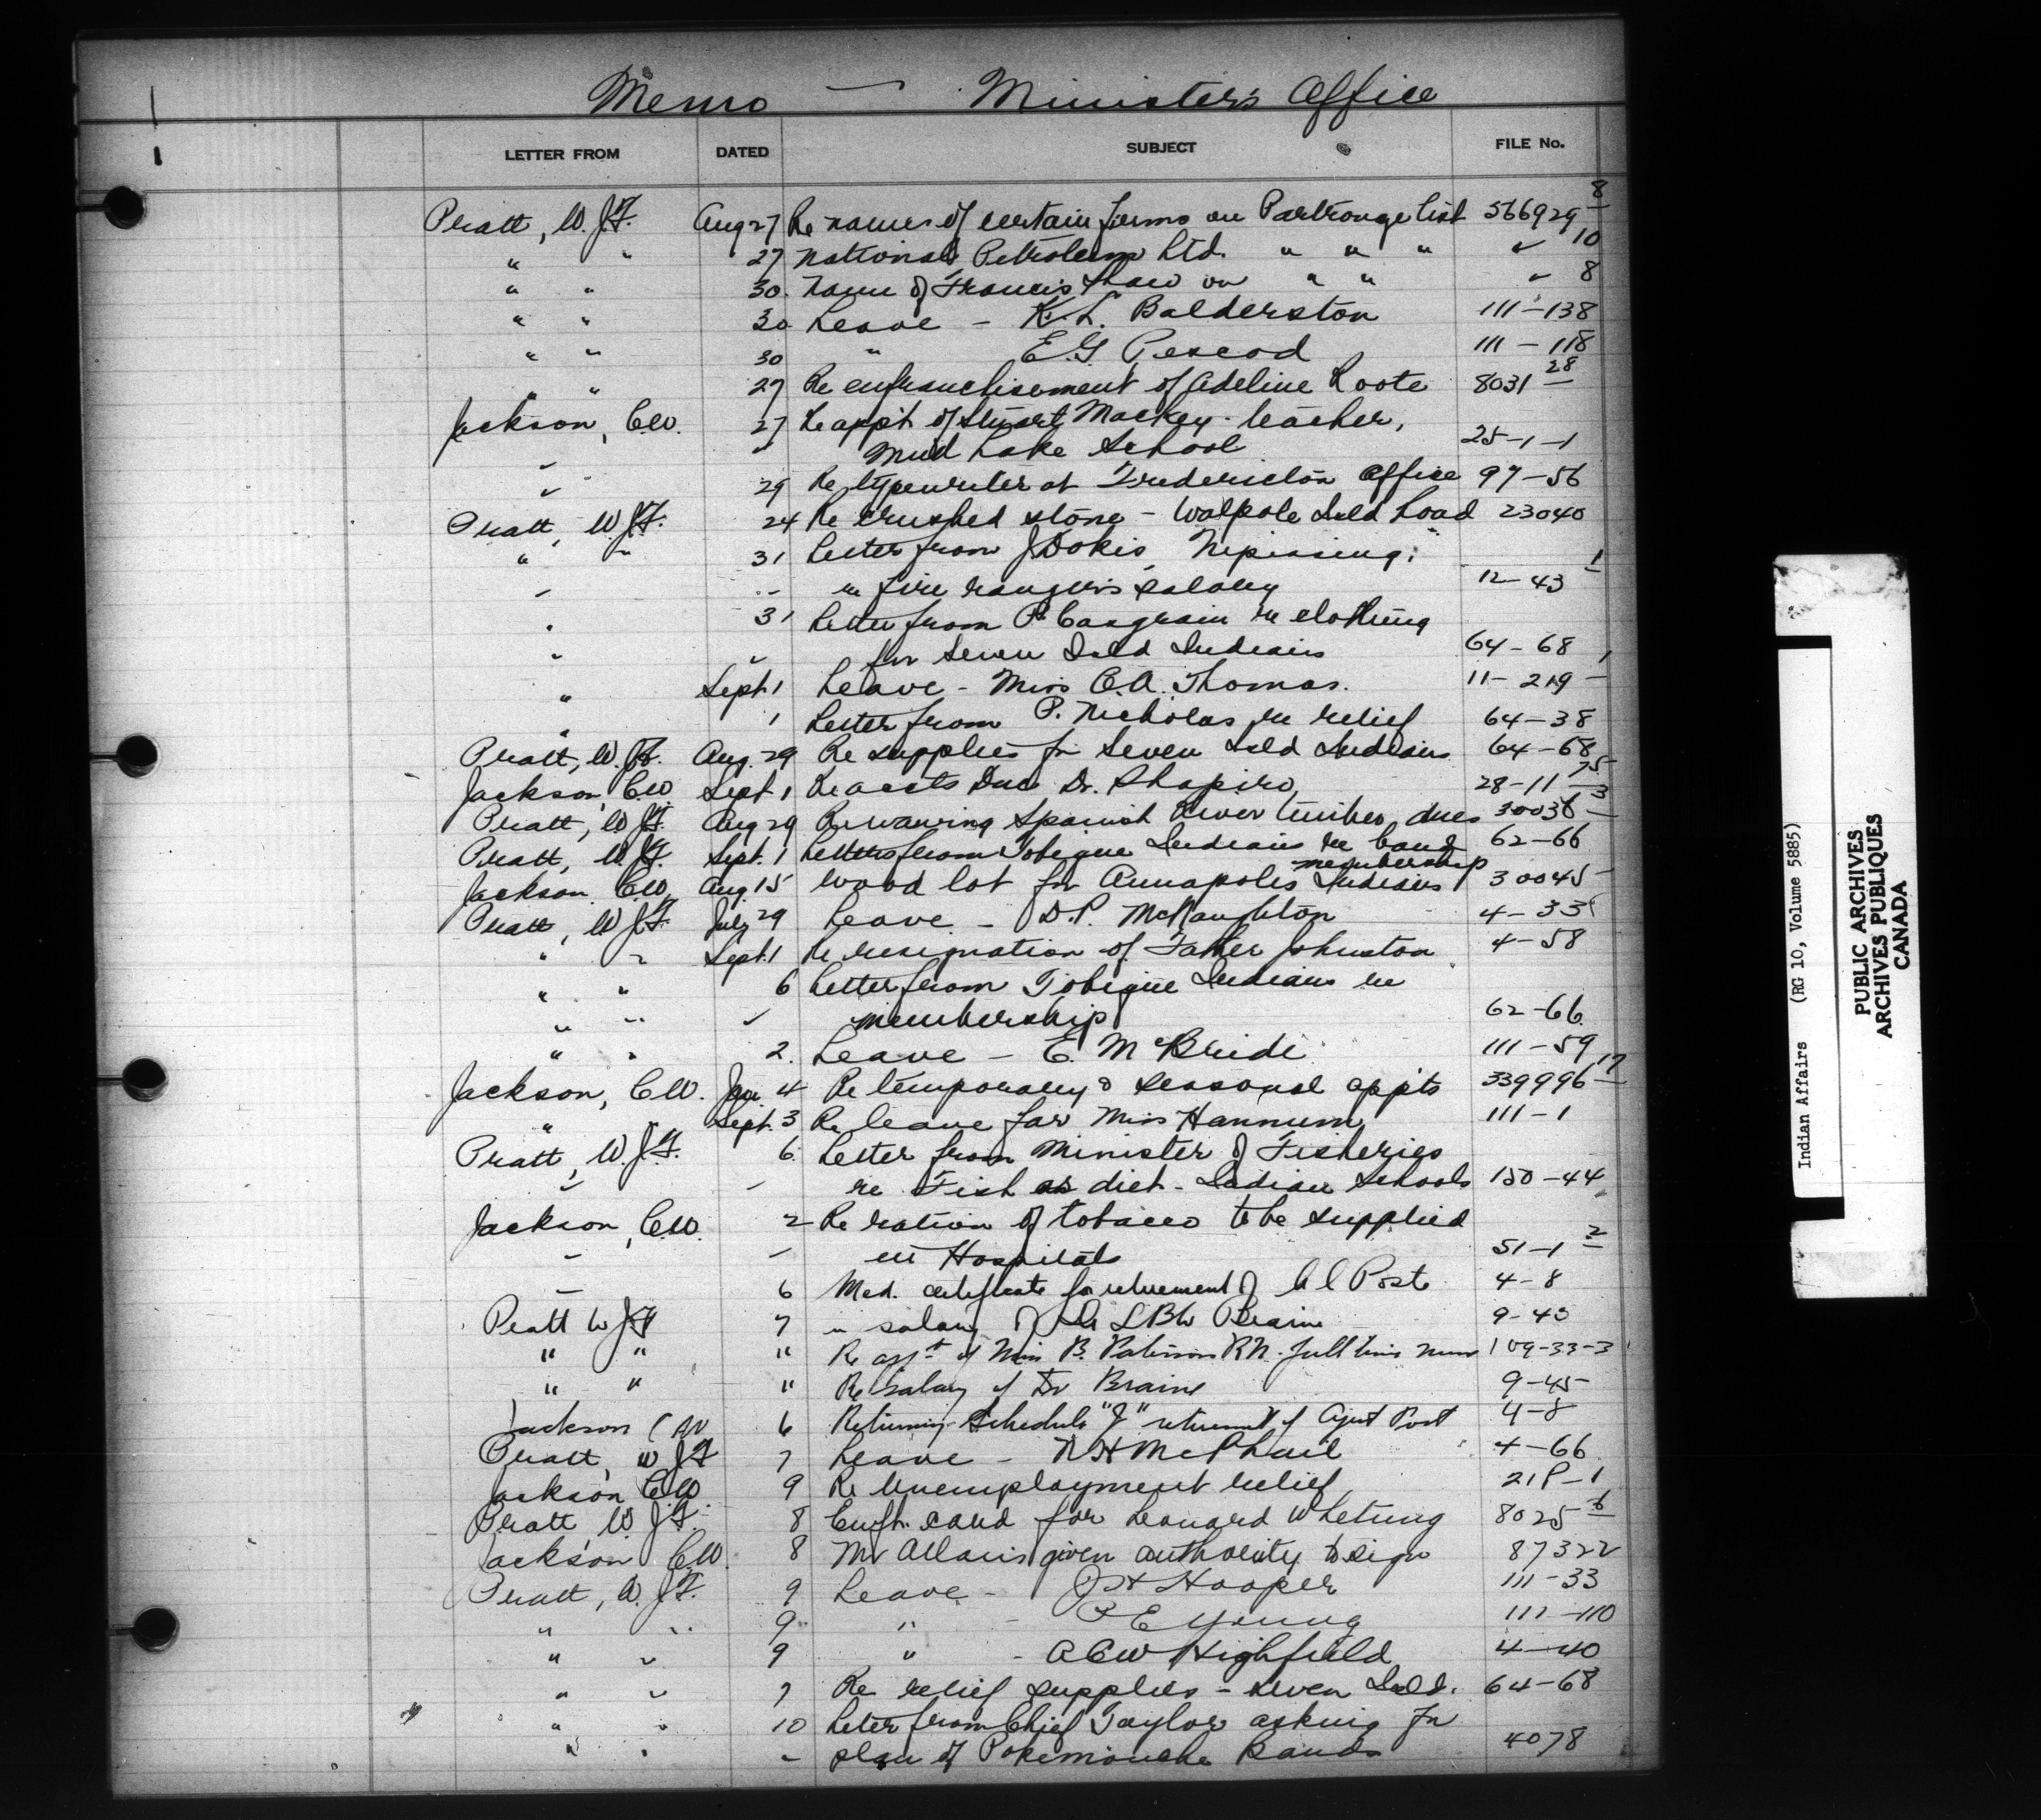 Memo — Minister's Office
LETTER FROM DATED SUBJECT FILE No.
Pratt, W.J.F. Aug 27 Re names of certain firms on Partronage list 566929 8
" " 27 National Petroleum Ltd. " " " " 10
" " 30. Name of Francis Shaw on " " " 8
" " 30 Leave - K.L. Balderston 111-138
" " 30 " E.G. Pescod 111-118
" " 27 Re enfranchisement of Adeline Roote 8031 28
Jackson, C.W. 27 Re appt of Stuart Mackey - teacher,
" " Mud Lake School 25-1-1
" 29 Re typewriter at Fredericton Office 97-56
Pratt, W.J.F. 24 Re crushed stone - Walpole Isld Road 23040
" " 31 Letter from J Dokis, Nipissing,
" " re fire ranger's salary 12-43 1
" 31 Letter from P. Casgrain re clothing
" " for Seven Isld Indians 64-68
" Sept. 1 Leave - Miss C.A. Thomas. 11-219 1
" 1 Letter from P. Nicholas re relief 64-38
Pratt, W.J.F. Aug. 29 Re supplies for Seven Isld Indians 64-68
Jackson, C.W. Sept 1 Re accts Due Dr. Shapiro 28-11 75
Pratt, W.J.F. Aug 29 Re waiving Spanish River timber dues 30036 3
Pratt, W.J.F. Sept. 1 Letters from Tobique Indians re band membership 62-66
Jackson, C.W. Aug. 15 Wood lot for Annapolis Indians 30045
Pratt, W.J.F. July 29 Leave - D.P. McNaughton 4-33
" " Sept. 1 Re resignation of Father Johnston 4-58
" " 6 Letter from Tobique Indians re
" " " membership 62-66
" " 2. Leave - E. McBride 111-59
Jackson, C.W. Jan. 4 Re temporary & seasonal appts 339996 17
" Sept. 3 Re leave for Miss Hannum 111-1
Pratt, W.J.F. 6. Letter from Minister of Fisheries
" " re Fish as diet - Indian Schools 150-44
Jackson, C.W. 2 Re ration of tobacco to be supplied
" " in Hospitals 51-1 2
" 6 Med. certificate for retirement of Post 4-8
Pratt W J F 7 " salary of Dr L B W Braine 9-45
" " " Re appt of Miss B. R.N. full time nurse 109-33-3
" " " Re salary of Dr Braine 9-45
Jackson C W 6 Returning Schedule "J" retirement of Agent Post 4-8
Pratt, W J F 7 Leave - N H McPhail 4-66
Jackson C W 9 Re Unemployment relief 21P-1
Pratt W. J F. 8 Enfr. card for Leonard Whetung 8025 6
Jackson C.W. 8 Mr Allan given authority to sign 87322
Pratt, W. J.F. 9 Leave - J H Hooper 111-33
" " 9 " - P E Young 111-110
" " 9 " - A C W Highfield 4-40
" " 7 Re relief supplies - Seven Isld. 64-68
" " 10 Letter from Chief Taylor asking for
" " " plan of Pokemouche Band 4078
Indian Affairs (RG 10, Volume 5885)
PUBLIC ARCHIVES
ARCHIVES PUBLIQUES
CANADA